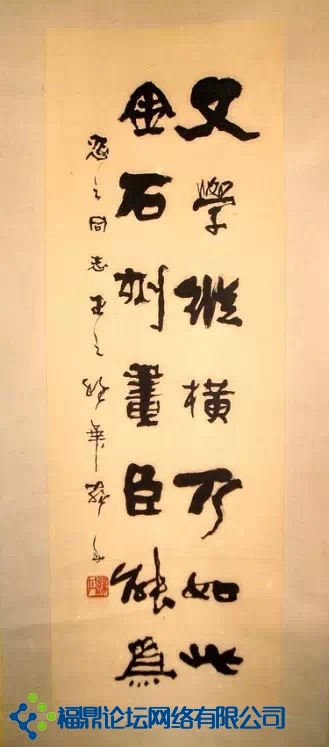 文學縱橫乃如此
金石刻畫臣能為
之同志正之
福鼎论坛网络有限公司